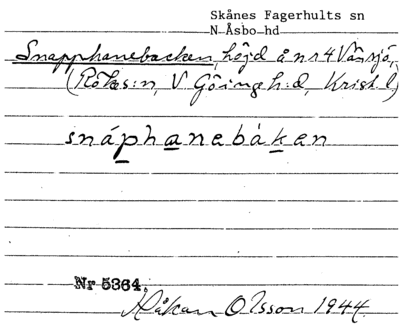 Skånes Fagerhults sn
N Åsbo hd
Snapphanebacken, höjd å nr 4 Vånsjö,
(Röke s:n, V Göinge h:d, Krist. l)
snáphanebàken
Nr 5364.
Håkan Olsson 1944.